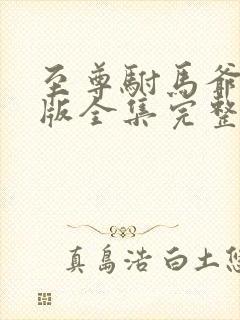 至尊駙馬爺
版全集完整
真島浩白土悠